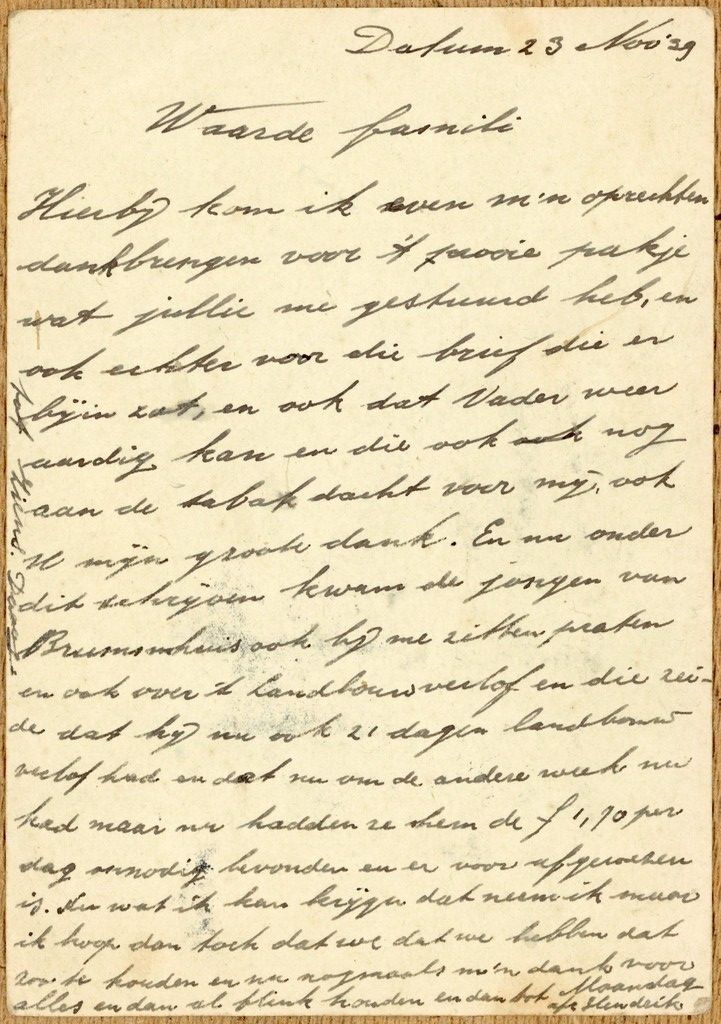 Datum 23 Nov '39
Waarde famili
Hierbij kom ik even m'n oprechten
dankbrengen voor 't mooie pakje
wat jullie me gestuurd heb, en
ook echter voor die brief die er
bijin zat, en ook dat Vader weer
aardig kan en die ook ook nog
aan de tabak dacht voor mij, ook
mijn groote dank. En nu onder
dit schrijven kwam de jongen van
ook bij me zitten praten
en ook over 't landbouwverlof en die zei-
de dat hij nu ook 21 dagen landbouw
verlof had en dat nu om de andere week nu
had maar nu hadden ze hem de f 1,70 per
dag onnodig bevonden en er voor afgewezen
is. Nu wat ik kan krijgen dat neem ik maar
ik hoop dan toch dat we dat we hebben dat
zoo te houden en nu nogmaals m'n dank voor
alles en dan al flink houden en dan tot Maandag
Hendrik
tot Ziens. Daag